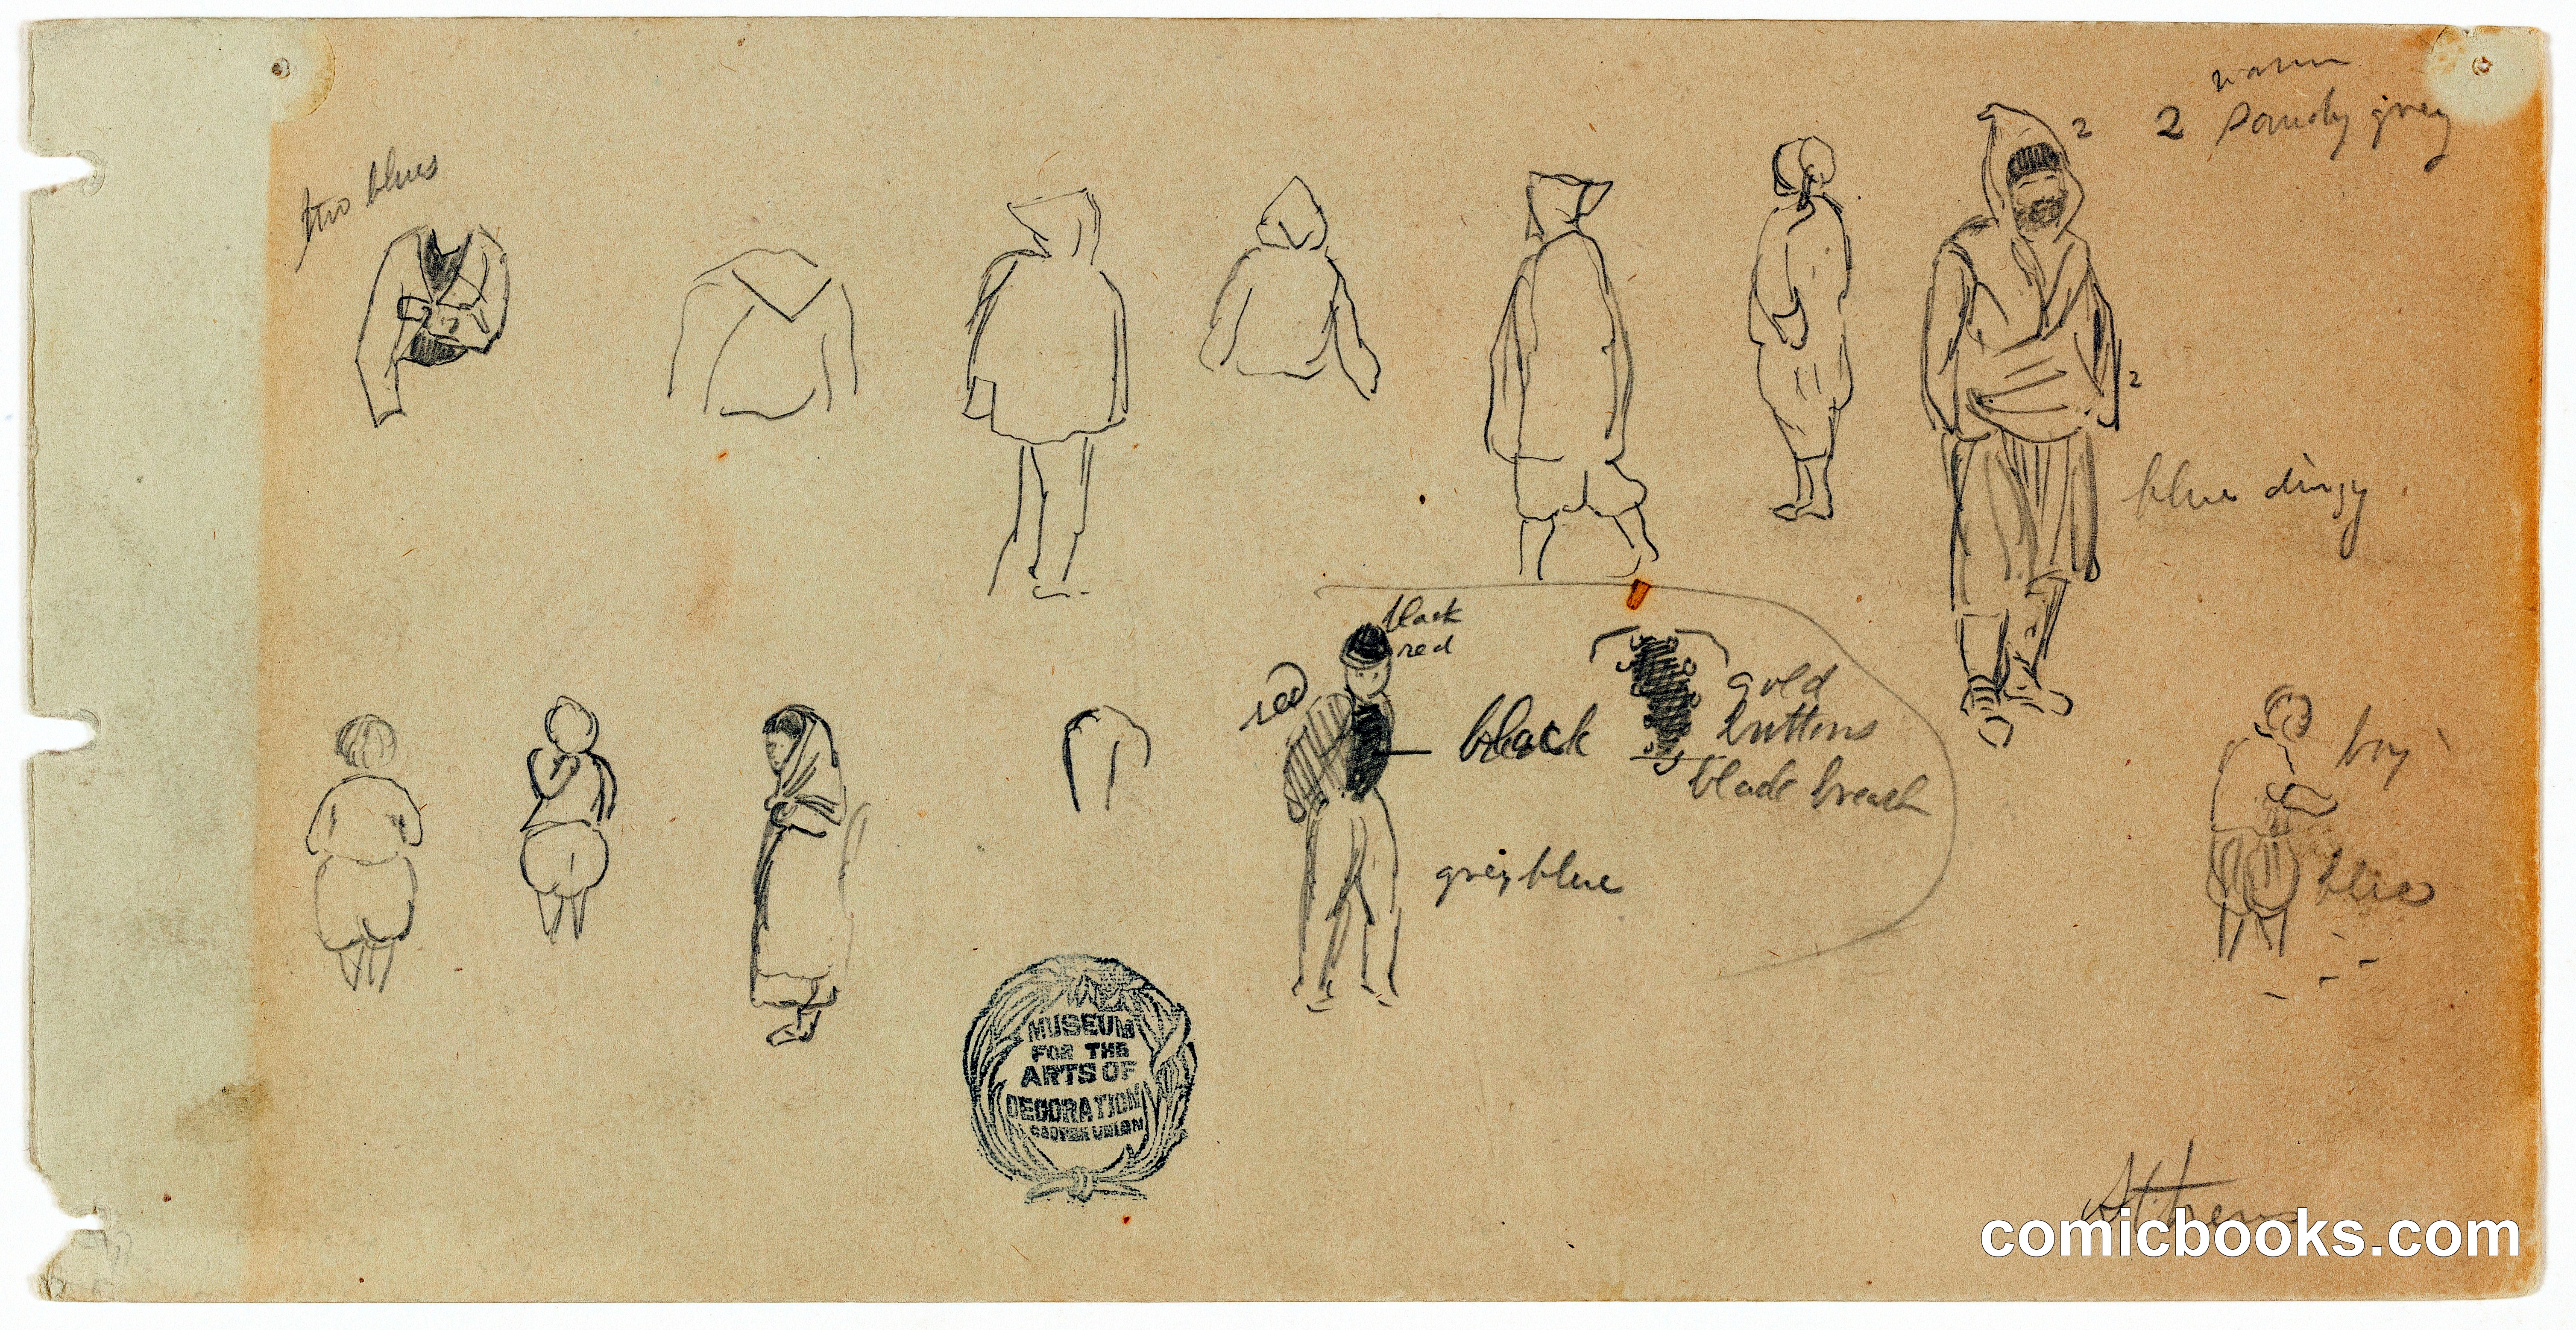 warm
2 2 sandy grey
two blues
2
2
blue dingy
black
red
red
gold
black
buttons
boy
black breast
grey blue
blue
MUSEUM
FOR THE
ARTS OF
DECORATION
COOPER UNION
Athens
comicbooks.com